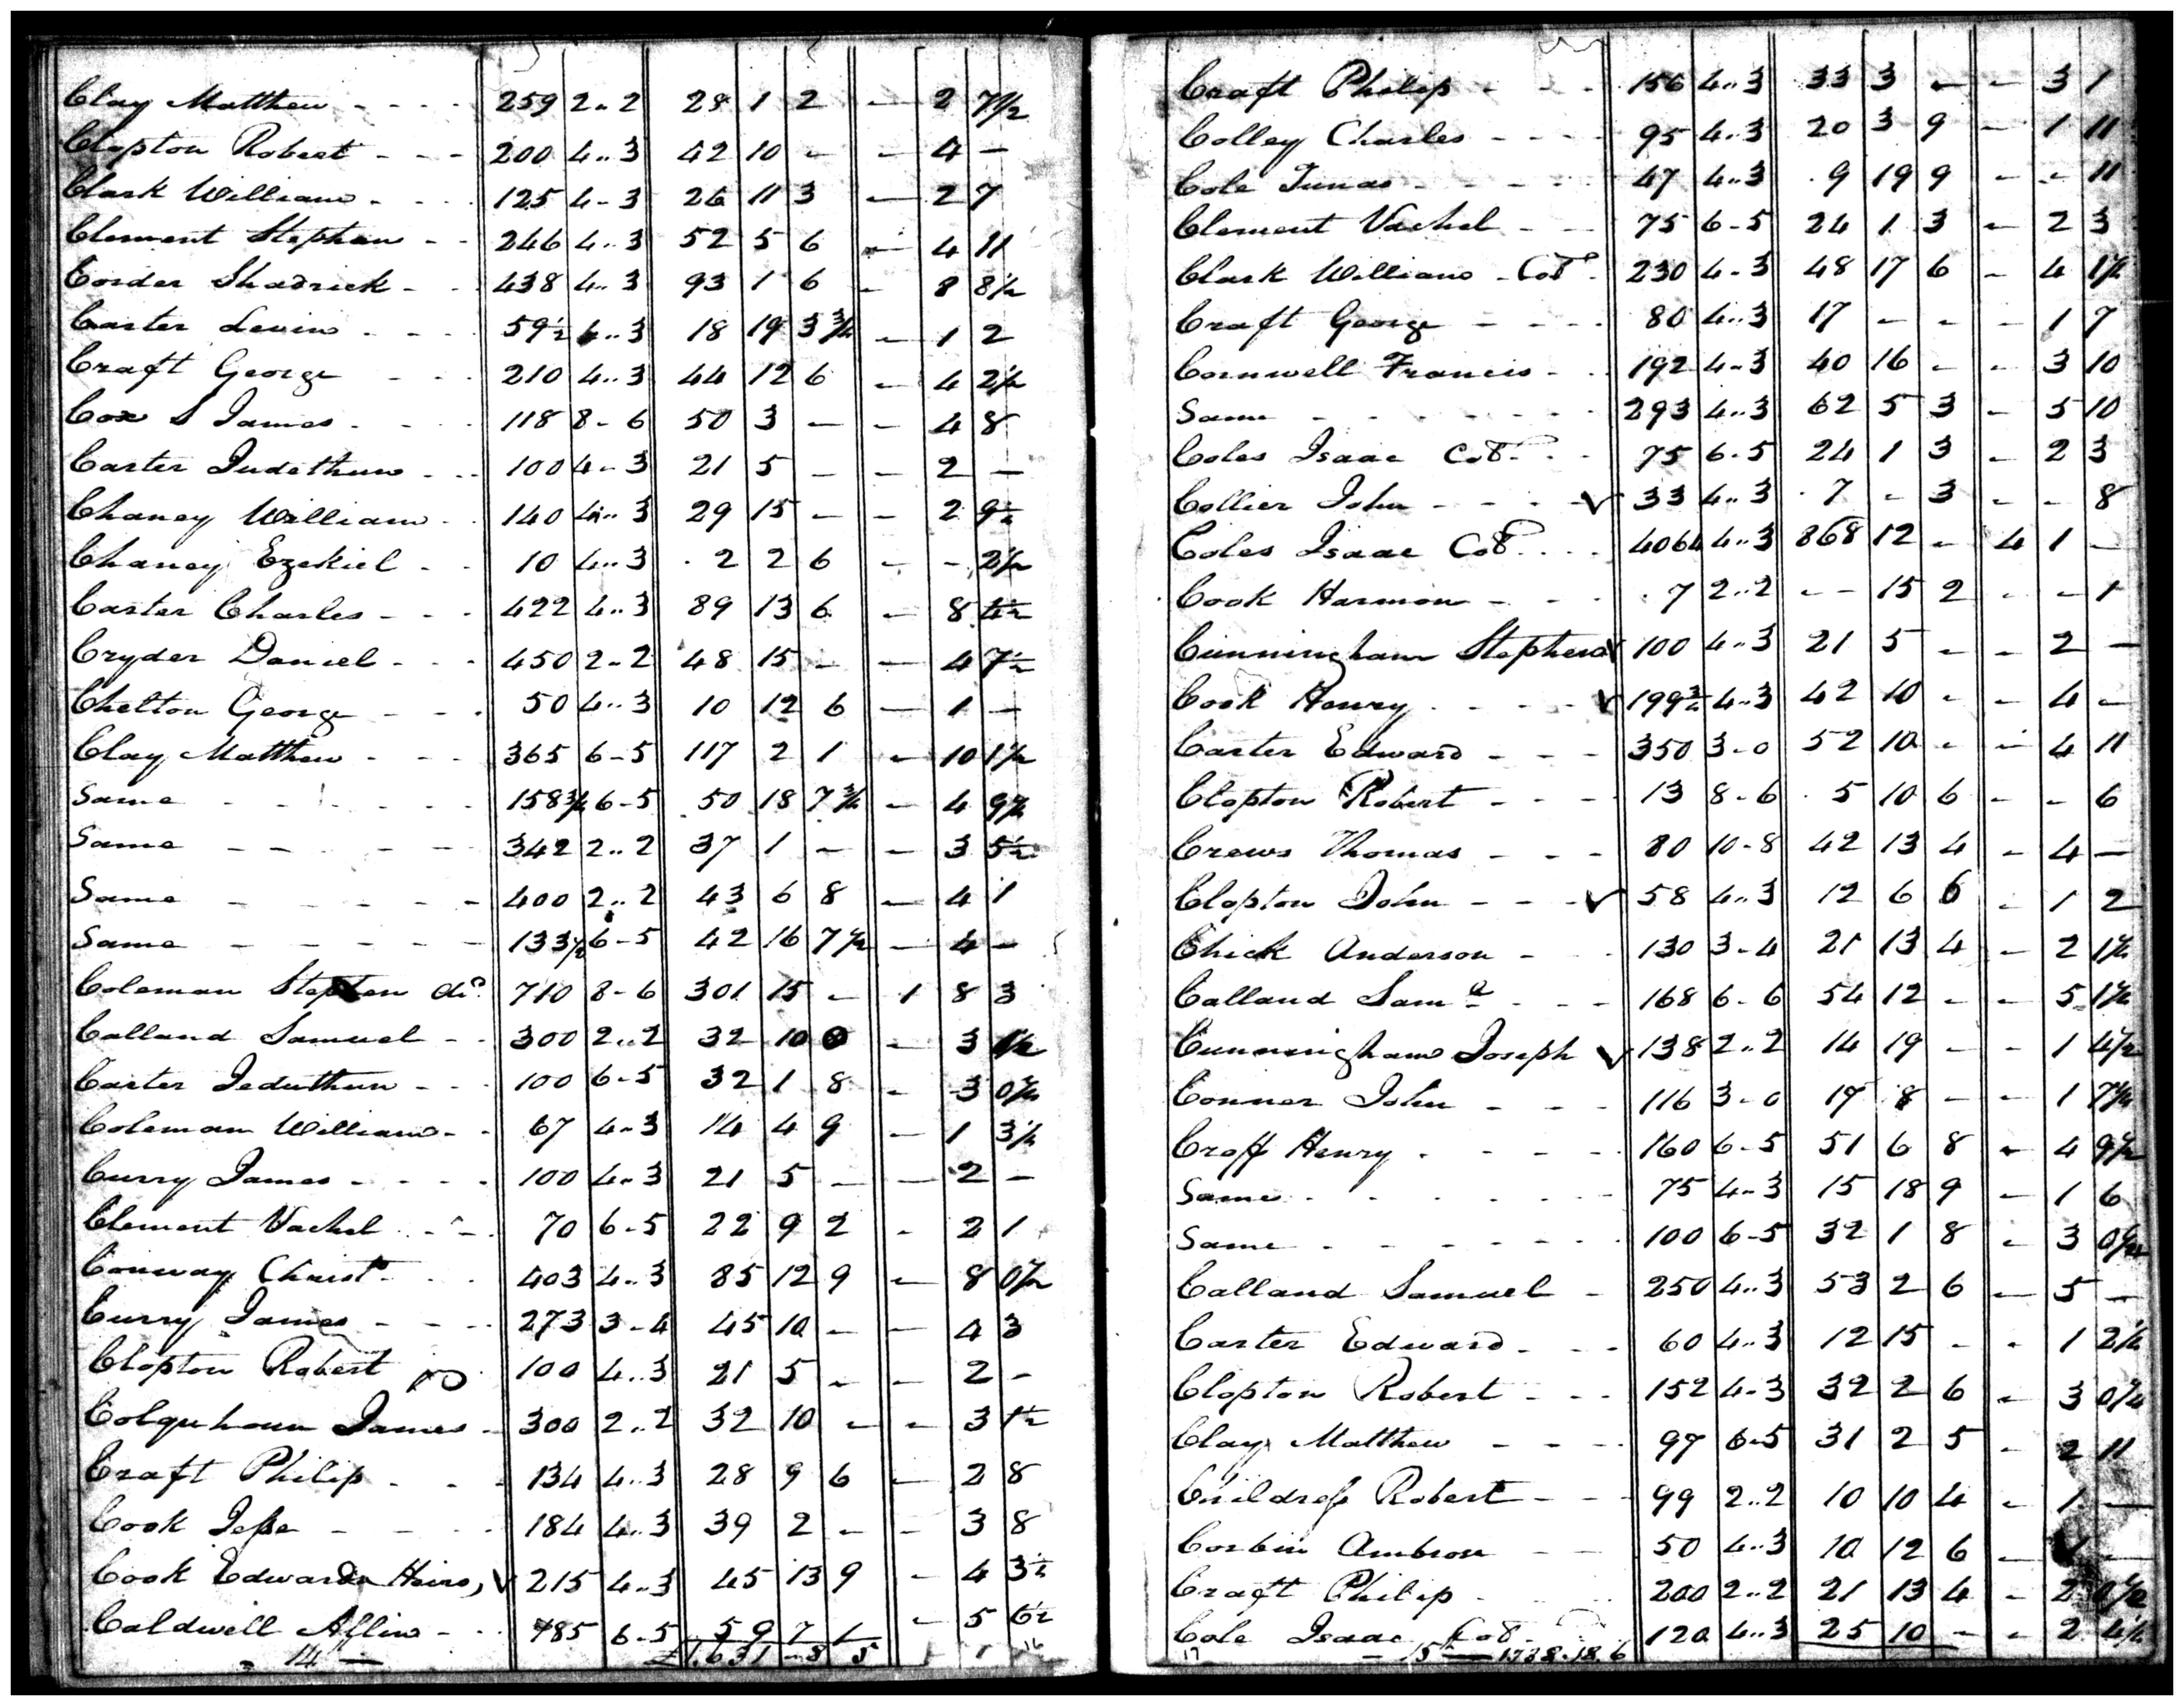 Clay Matthew - - - - 259 2..2 28 1 2 - 2 7 1/2
Clopton Robert - - - 200 4..3 42 10 - - 4 -
Clark William - - - 125 4-3 26 11 3 - 2 7
Clement Stephen - - 246 4..3 52 5 6 - 4 11
Corder Shadrick - - 438 4..3 93 1 6 - 8 8 1/2
Carter Levin - - - 59 1/2 6..3 18 19 3 3/4 - 1 2
Craft George - - - 210 4..3 44 12 6 - 4 2 1/2
Cox S James - - - 118 8-6 50 3 - - 4 8
Carter Judethun - - - 100 4-3 21 5 - - 2 -
Chaney William - - 140 4..3 29 15 - - 2 9 1/2
Chaney Ezekiel - - 10 4..3 2 2 6 - - 2 1/2
Carter Charles - - - 422 4..3 89 13 6 - 8 4 1/2
Cryder Daniel - - - 450 2-2 48 15 - - 4 7 1/2
Chelton George - - - 50 4..3 10 12 6 - 1 -
Clay Matthew - - - 365 6-5 117 2 1 - 10 1 1/2
Same - - - - - 158 3/4 6-5 50 18 7 3/4 - 4 9 1/2
Same - - - - - 342 2..2 37 1 - - 3 5 1/2
Same - - - - - 400 2..2 43 6 8 - 4 1
Same - - - - - 133 1/2 6-5 42 16 7 1/2 - 4 -
Coleman Stephen do 710 8-6 301 15 - 1 8 3
Calland Samuel - - 300 2..2 32 10 0 - 3 1 1/2
Carter Jeduthun - - 100 6-5 32 1 8 - 3 0 1/2
Coleman William - - 67 4-3 14 4 9 - 1 3 1/2
Curry James - - - - 100 4..3 21 5 - - 2 -
Clement Vachel - - - 70 6-5 22 9 2 - 2 1
Conway Christo - - - 403 4..3 85 12 9 - 8 0 1/2
Curry James - - - 273 3-4 45 10 - - 4 3
Clopton Robert 100 4..3 21 5 - - 2 -
Colquhoun James - 300 2..2 32 10 - - 3 1 1/2
Craft Philip - - - 134 4..3 28 9 6 - 2 8
Cook Jesse - - - - 184 4..3 39 2 - - 3 8
Cook Edwards Heirs, ✓ 215 4..3 45 13 9 - 4 3 1/2
Caldwell Allin - - 6-5 59 7 1 - 5 6 1/2
- 14 - £1.631-8 5
Craft Philip - - - 156 4..3 33 3 - - 3 1
Colley Charles - - - - 95 4..3 20 3 9 - 1 11
Cole - - - - 47 4..3 9 19 9 - - 11
Clement Vachel - - - 75 6-5 24 1 3 - 2 3
Clark William - Co 230 4-3 48 17 6 - 4 1 1/2
Craft George - - - - 80 4..3 17 - - - 1 7
Cornwell Francis - - 192 4-3 40 16 - - 3 10
Same - - - - - - 293 4..3 62 5 3 - 5 10
Coles Isaac Col - - 75 6-5 24 1 3 - 2 3
Collier John - - - - ✓ 33 4..3 7 - 3 - - 8
Coles Isaac Col - - - 4064 4..3 868 12 - 4 1 -
Cook Harmon - - - 7 2..2 - - 15 2 - - 1
Cunningham Stephens ✓ 100 4..3 21 5 - - 2 -
Cook Henry - - - - ✓ 199 4..3 42 10 - - 4 -
Carter Edward - - - 350 3-0 52 10 - - 4 11
Clopton Robert - - - - 13 8-6 5 10 6 - - 6
Crews Thomas - - - 80 10-8 42 13 4 - 4 -
Clopton John - - - ✓ 58 4..3 12 6 6 - 1 2
Chick Anderson - - - 130 3-4 21 13 4 - 2 1 1/2
Calland Saml - - - 168 6-6 54 12 - - 5 1 1/2
Cunningham Joseph ✓ 138 2..2 14 19 - - 1 4 1/2
Conner John - - - 116 3-0 17 8 - - 1 7 3/4
Croff Henry - - - - 160 6-5 51 6 8 - 4 9 1/2
Same - - - - - 75 4-3 15 18 9 - 1 6
Same - - - - - - 100 6-5 32 1 8 - 3 0 1/2
Calland Samuel - 250 4..3 53 2 6 - 5 -
Carter Edward - - - 60 4..3 12 15 - - 1 2 1/2
Clopton Robert - - - 152 4-3 32 2 6 - 3 0 1/2
Clay Matthew - - - - 97 6-5 31 2 5 - 2 11
Childress Robert - - - 99 2..2 10 10 4 - 1 -
Corbin Ambrose - - 50 4..3 10 12 6 - 1 -
Craft Philip - - - 200 2..2 21 13 4 - 2 0 1/2
Cole Isaac Col 120 4..3 25 10 - - 2 4 1/2
17 - 15 - 1738.18.6